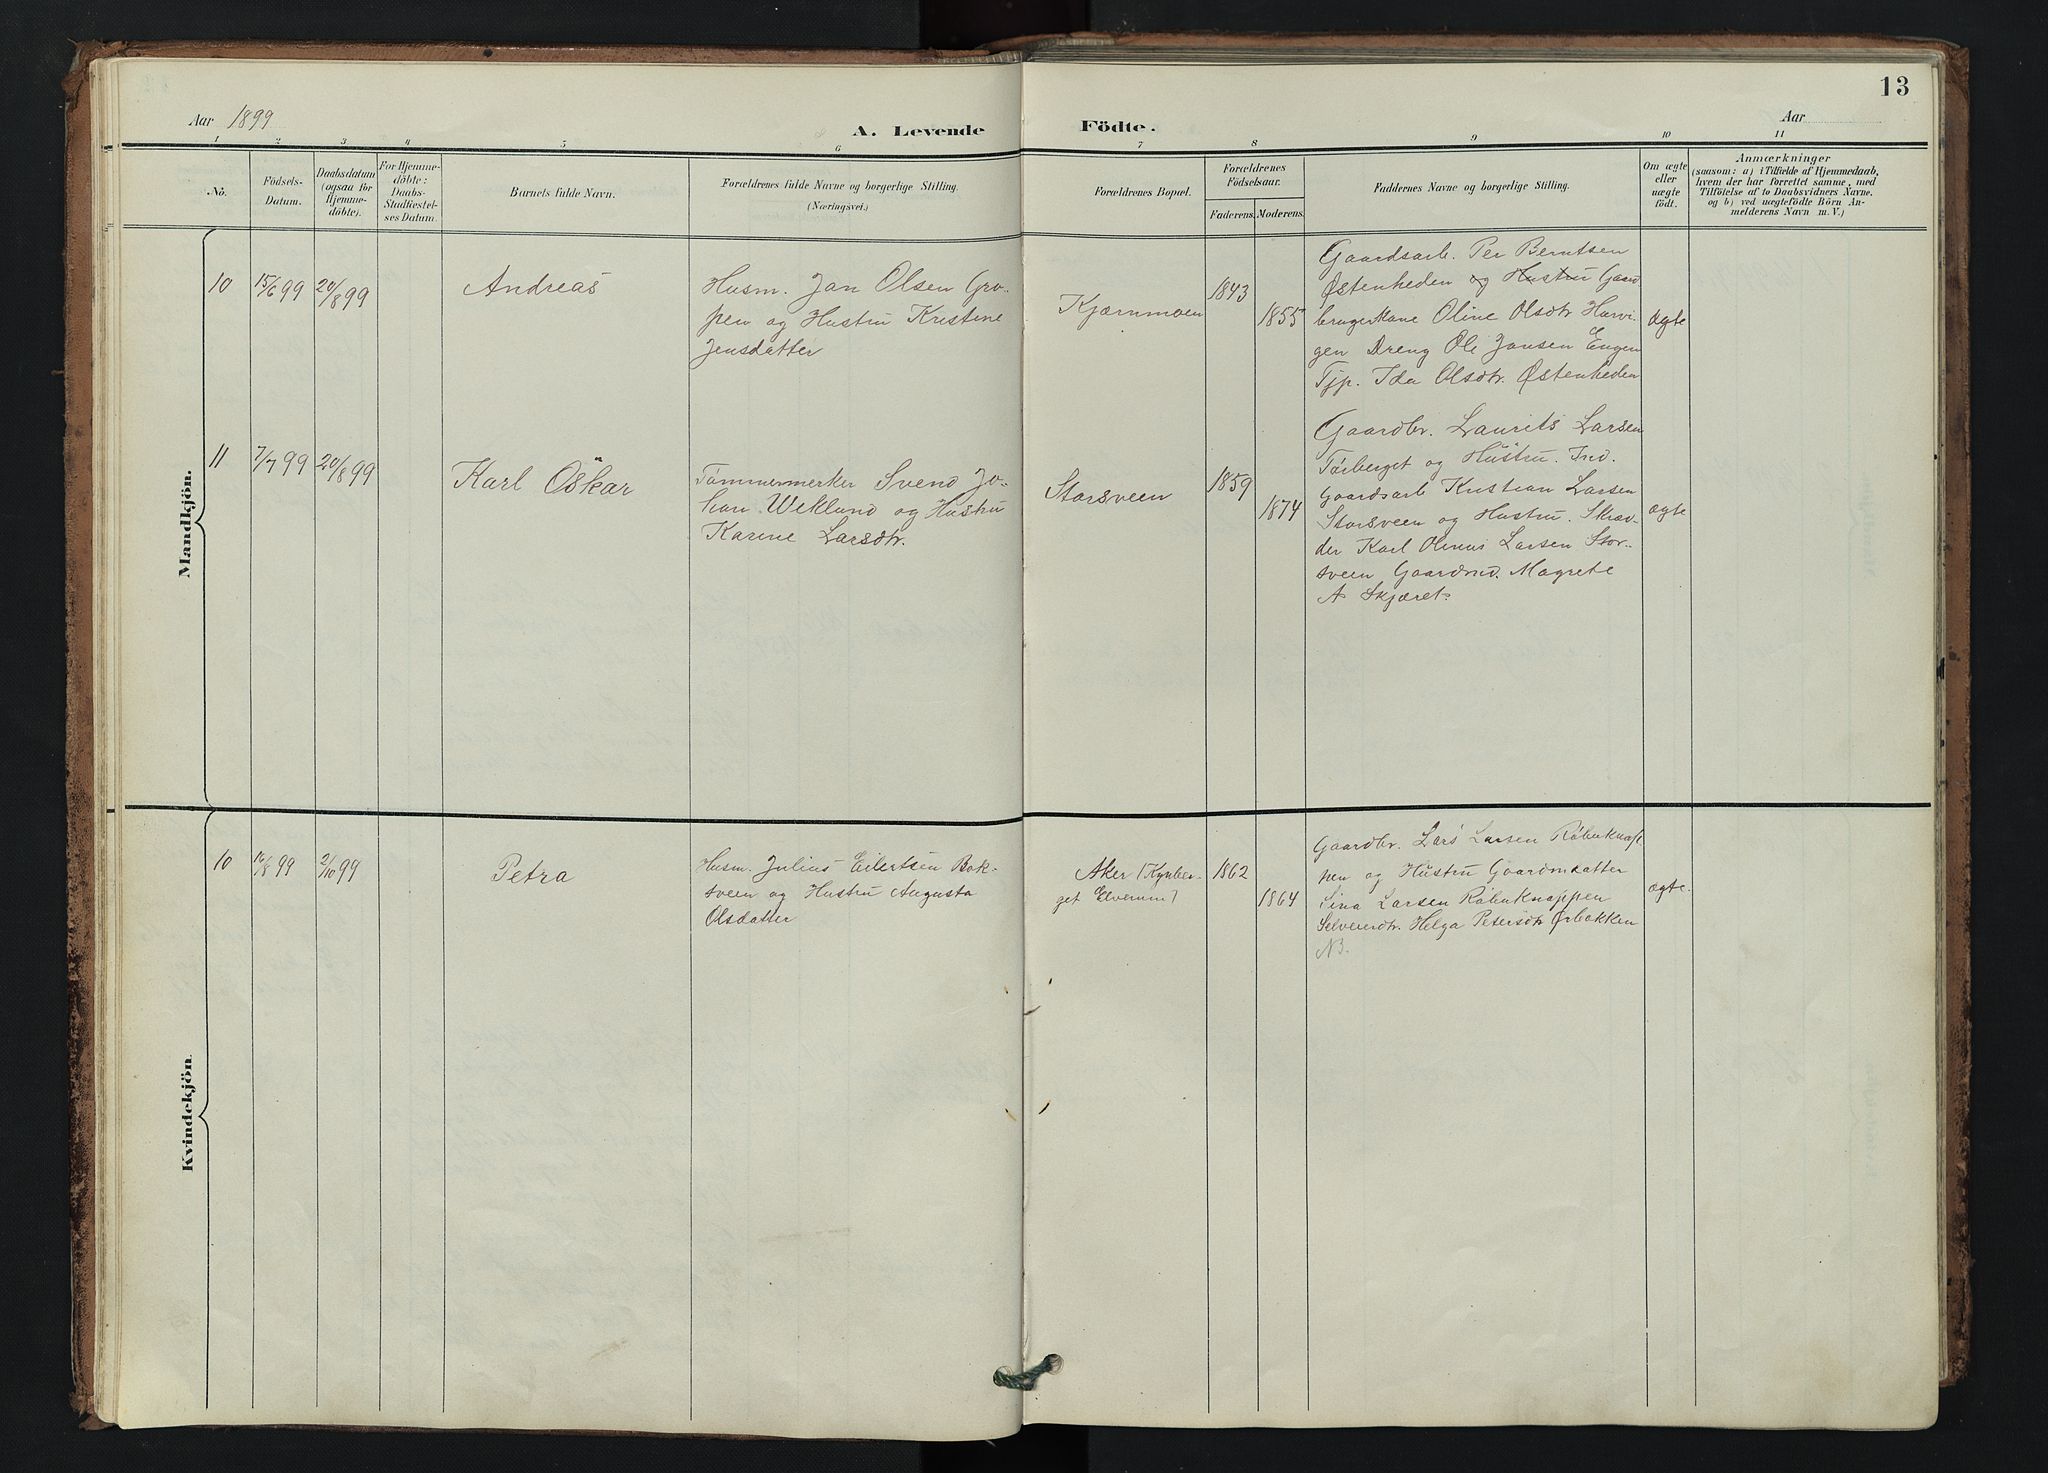 13
Aar 1899
A. Levende Födte.
Aar
1 2 3 4 5 6 7 8 9 10 11
No.
Födsels-
Datum.
Daabsdatum
(ogsaa for
Hjemme-
döbte).
For Hjemme-
döbte:
Daabs-
Stadfæstel-
ses Datum.
Barnets fulde Navn.
Forældrenes fulde Navne og borgerlige Stilling.
(Næringsvei.)
Forældrenes Bopæl.
Forældrenes
Födselsaar.
Faderens. Moderens.
Faddernes Navne og borgerlige Stilling.
Om ægte
eller
uægte
födt.
Anmærkninger
(saasom: a) i Tilfælde af Hjemmedaab,
hvem der har forrettet samme, med
Tilföielse af to Daabsvidners Navne.
og b) ved uægtefödte Börn An-
melderens Navn m. V.)
Mandkjön.
10
15/6 99
20/8 99
Andreas
Husm. Jan Olsen Gro-
pen og Hustru Kristine
Jensdatter
Kjærnmoen
1843
1855
Gaardsarb. Per Berntsen
Østenheden og Hustru Gaard
brugerkone Oline Olsdtr Harvi-
gen Dreng Ole Jansen Engen
Tjp. Ida Olsdtr. Østenheden
Ægte
11
7/7 99
20/8 99
Karl Oskar
Tømmermerker Svend Jo-
han Wiklund og Hustru
Karine Larsdtr.
Storsveen
1859
1874
Gaardbr. Laurits Larsen
Tørberget og Hustru. Ind.
Gaardsarb Kristian Larsen
Storsveen og Hustru. Skræd-
der Karl Olenus Larsen Stor-
sveen Gaardmd. Magrete
A Skjæret.
ægte
Kvindekjön.
10
16/8 99
2/10 99
Petra
Husm. Julius Eilertsen Bak-
sveen og Hustru Augusta
Olsdatter
Aker [Kynber-
get Elverum]
1862
1864
Gaardbr. Lars Larsen Røbuknap
pen og Hustru Gaardmdatter
Sina Larsen Røbuknappen
Selveierdtr. Helga Petersdtr Ørbakken
NB.
ægte.